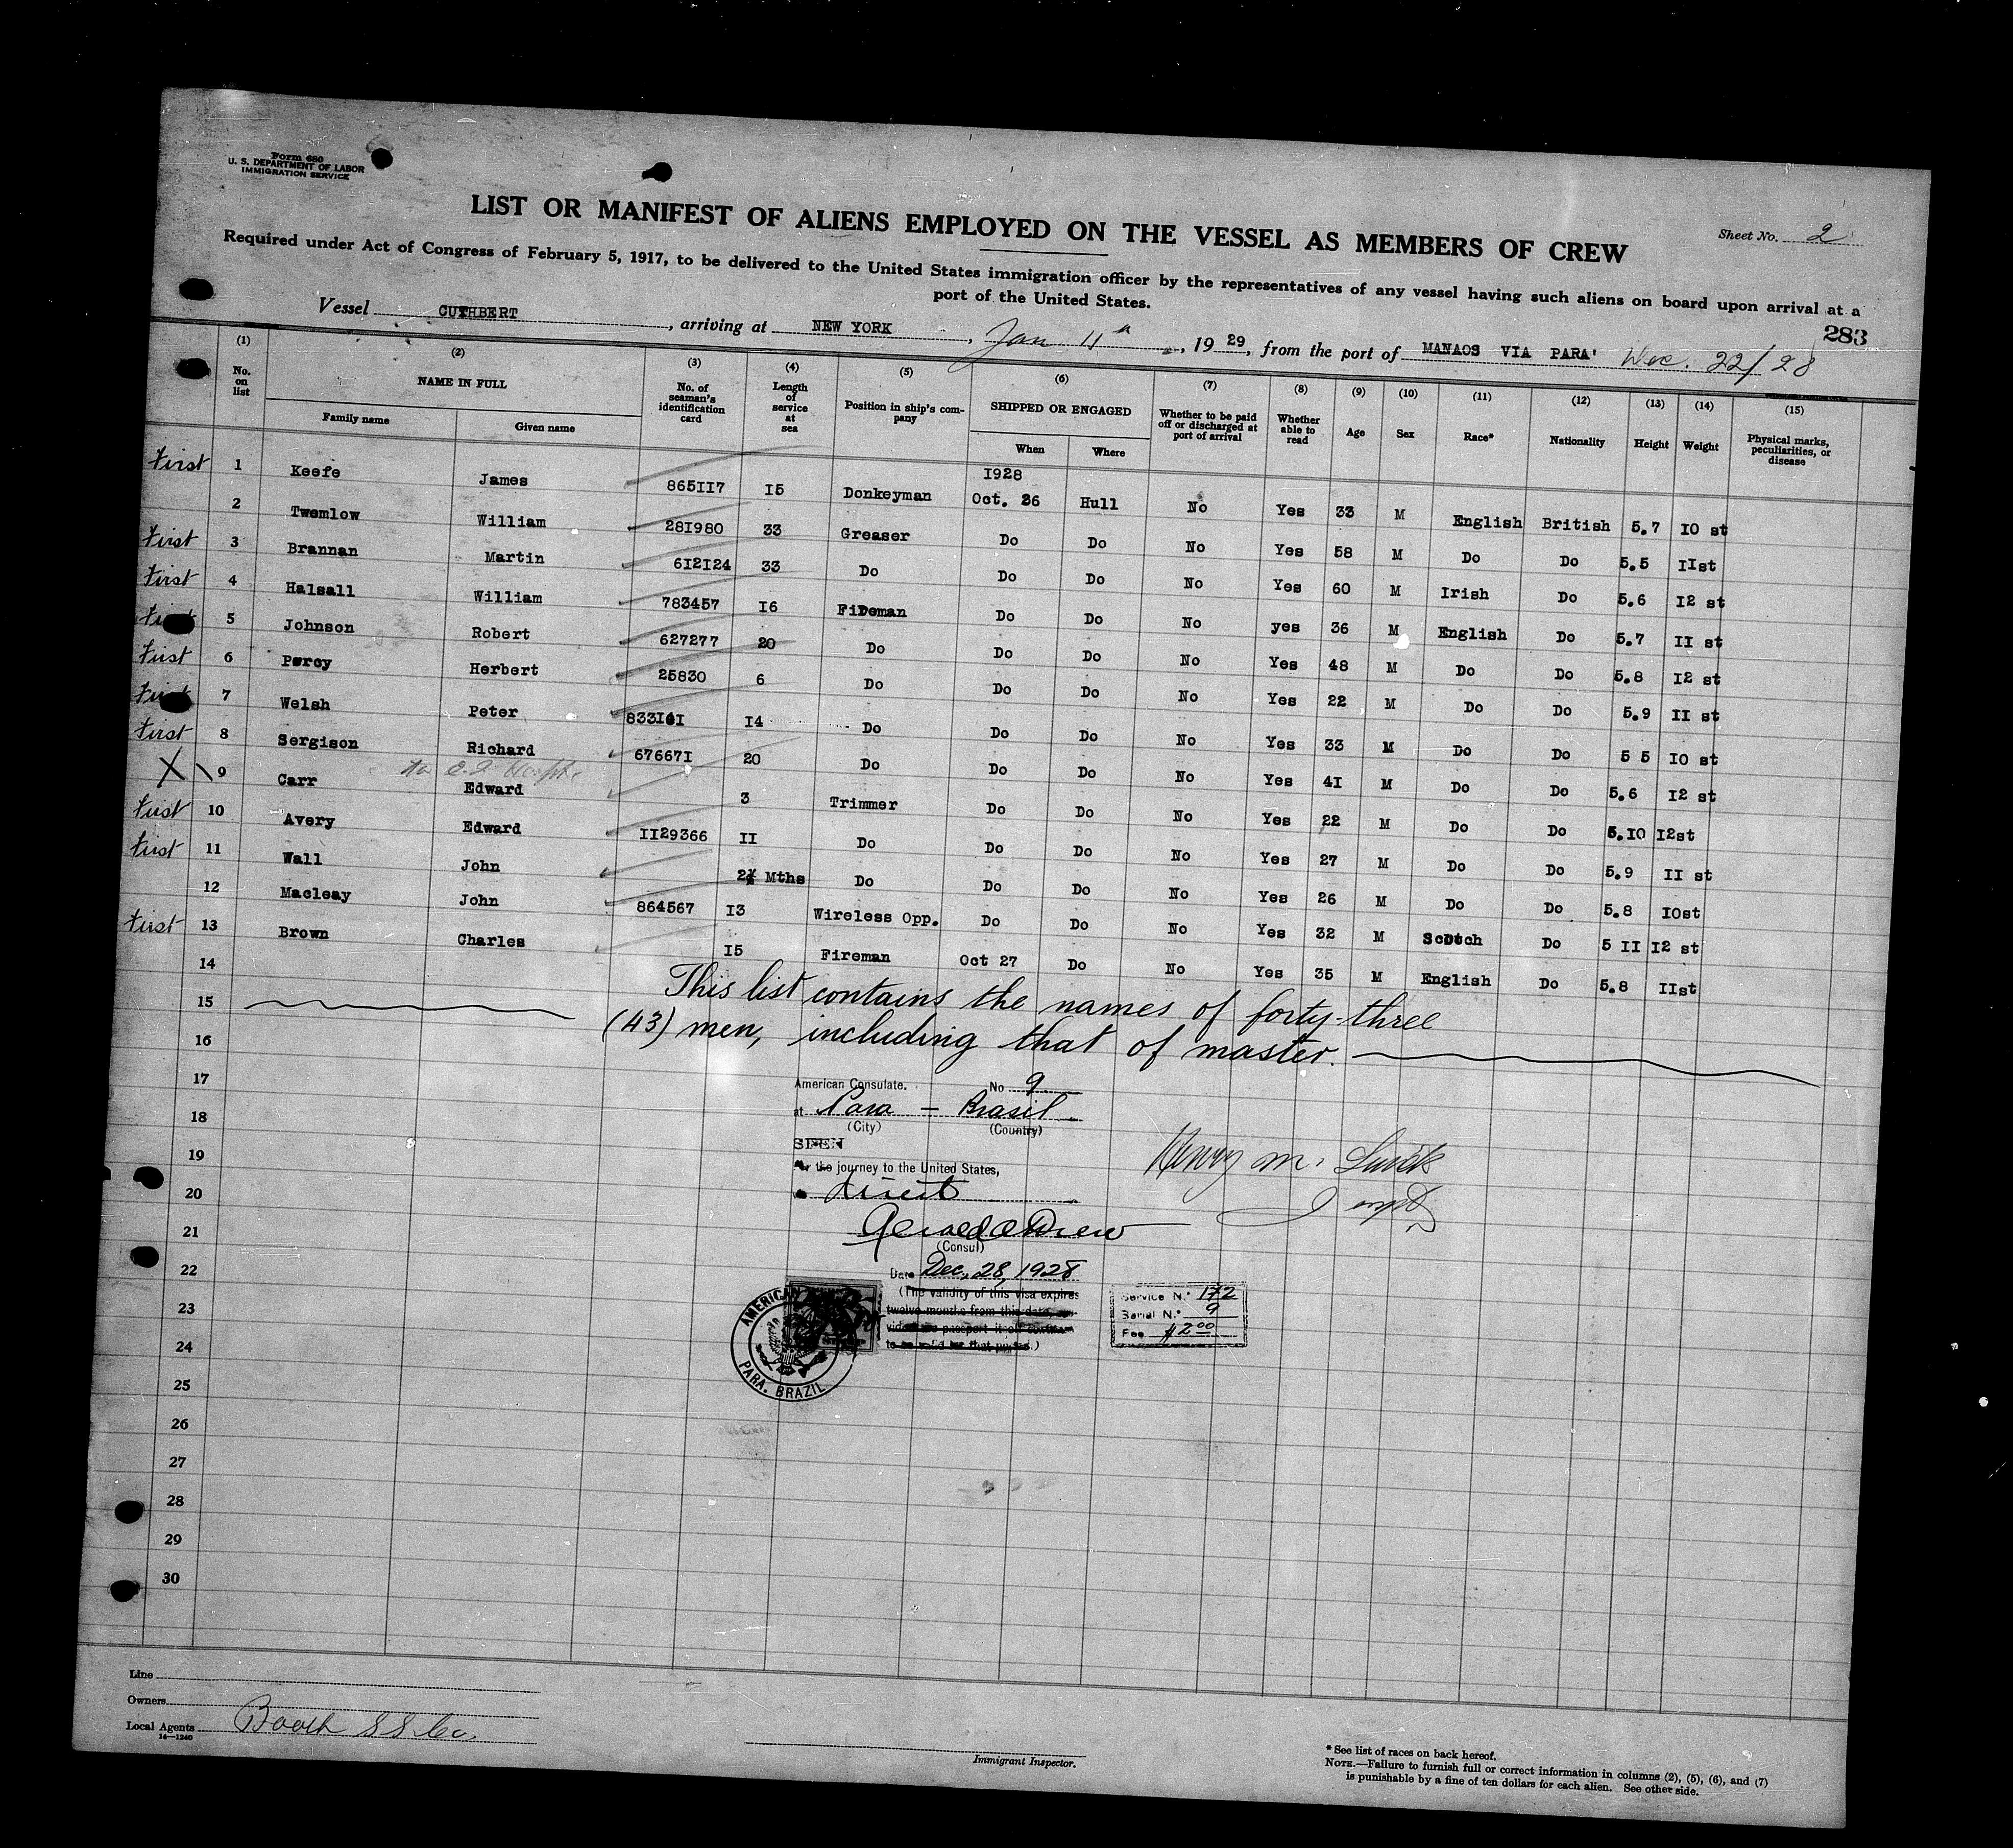 Form 680
U. S. DEPARTMENT OF LABOR
IMMIGRATION SERVICE
LIST OR MANIFEST OF ALIENS EMPLOYED ON THE VESSEL AS MEMBERS OF CREW
Sheet No. 2
Required under Act of Congress of February 5, 1917, to be delivered to the United States immigration officer by the representatives of any vessel having such aliens on board upon arrival at a
port of the United States.
283
Vessel CUTHBERT, arriving at NEW YORK, Jan 11th, 1929, from the port of MANAOS VIA PARA' Dec. 22/28
(1) (2) (3) (4) (5) (6) (7) (8) (9) (10) (11) (12) (13) (14) (15)
No. on list NAME IN FULL Family name Given name No. of seaman's identification card Length of service at sea Position in ship's company SHIPPED OR ENGAGED When Where Whether to be paid off or discharged at port of arrival Whether able to read Age Sex Race* Nationality Height Weight Physical marks, peculiarities, or disease
First 1 Keefe James 865117 15 Donkeyman 1928 Oct. 26 Hull No Yes 33 M English British 5.7 10 st
2 Twemlow William 281980 33 Greaser Do Do No Yes 58 M Do Do 5.5 11st
First 3 Brannan Martin 612124 33 Do Do Do No Yes 60 M Irish Do 5.6 12 st
First 4 Halsall William 783457 16 Fireman Do Do No yes 36 M English Do 5.7 11 st
First 5 Johnson Robert 627277 20 Do Do Do No Yes 48 M Do Do 5.8 12 st
First 6 Percy Herbert 25830 6 Do Do Do No Yes 22 M Do Do 5.9 11 st
First 7 Welsh Peter 833141 14 Do Do Do No Yes 33 M Do Do 5 5 10 st
First 8 Sergison Richard 676671 20 Do Do Do No Yes 41 M Do Do 5.6 12 st
X 9 Carr Edward 3 Trimmer Do Do No Yes 22 M Do Do 5.10 12st
First 10 Avery Edward 1129366 11 Do Do Do No Yes 27 M Do Do 5.9 11 st
First 11 Wall John 2 Mths Do Do Do No Yes 26 M Do Do 5.8 10st
12 Macleay John 864567 13 Wireless Opp. Do Do No Yes 32 M Scotch Do 5 11 12 st
First 13 Brown Charles 15 Fireman Oct 27 Do No Yes 35 M English Do 5.8 11st
14
15
16
17
18
19
20
21
22
23
24
25
26
27
28
29
30
This list contains the names of forty-three
(43) men, including that of master.
American Consulate. No 9
at Para - Brasil
(City) (Country)
SEEN
For the journey to the United States,
direct
(Consul)
Date Dec. 28, 1928
(The validity of this visa expires
twelve months from this date,
Henry M.
AMERICAN
PARA. BRAZIL
Service N.º 172
Serial N.º 9
Fee $2.00
Line
Owners
Local Agents Booth SS Co.
14—1240
Immigrant Inspector.
* See list of races on back hereof.
NOTE.—Failure to furnish full or correct information in columns (2), (5), (6), and (7)
is punishable by a fine of ten dollars for each alien. See other side.